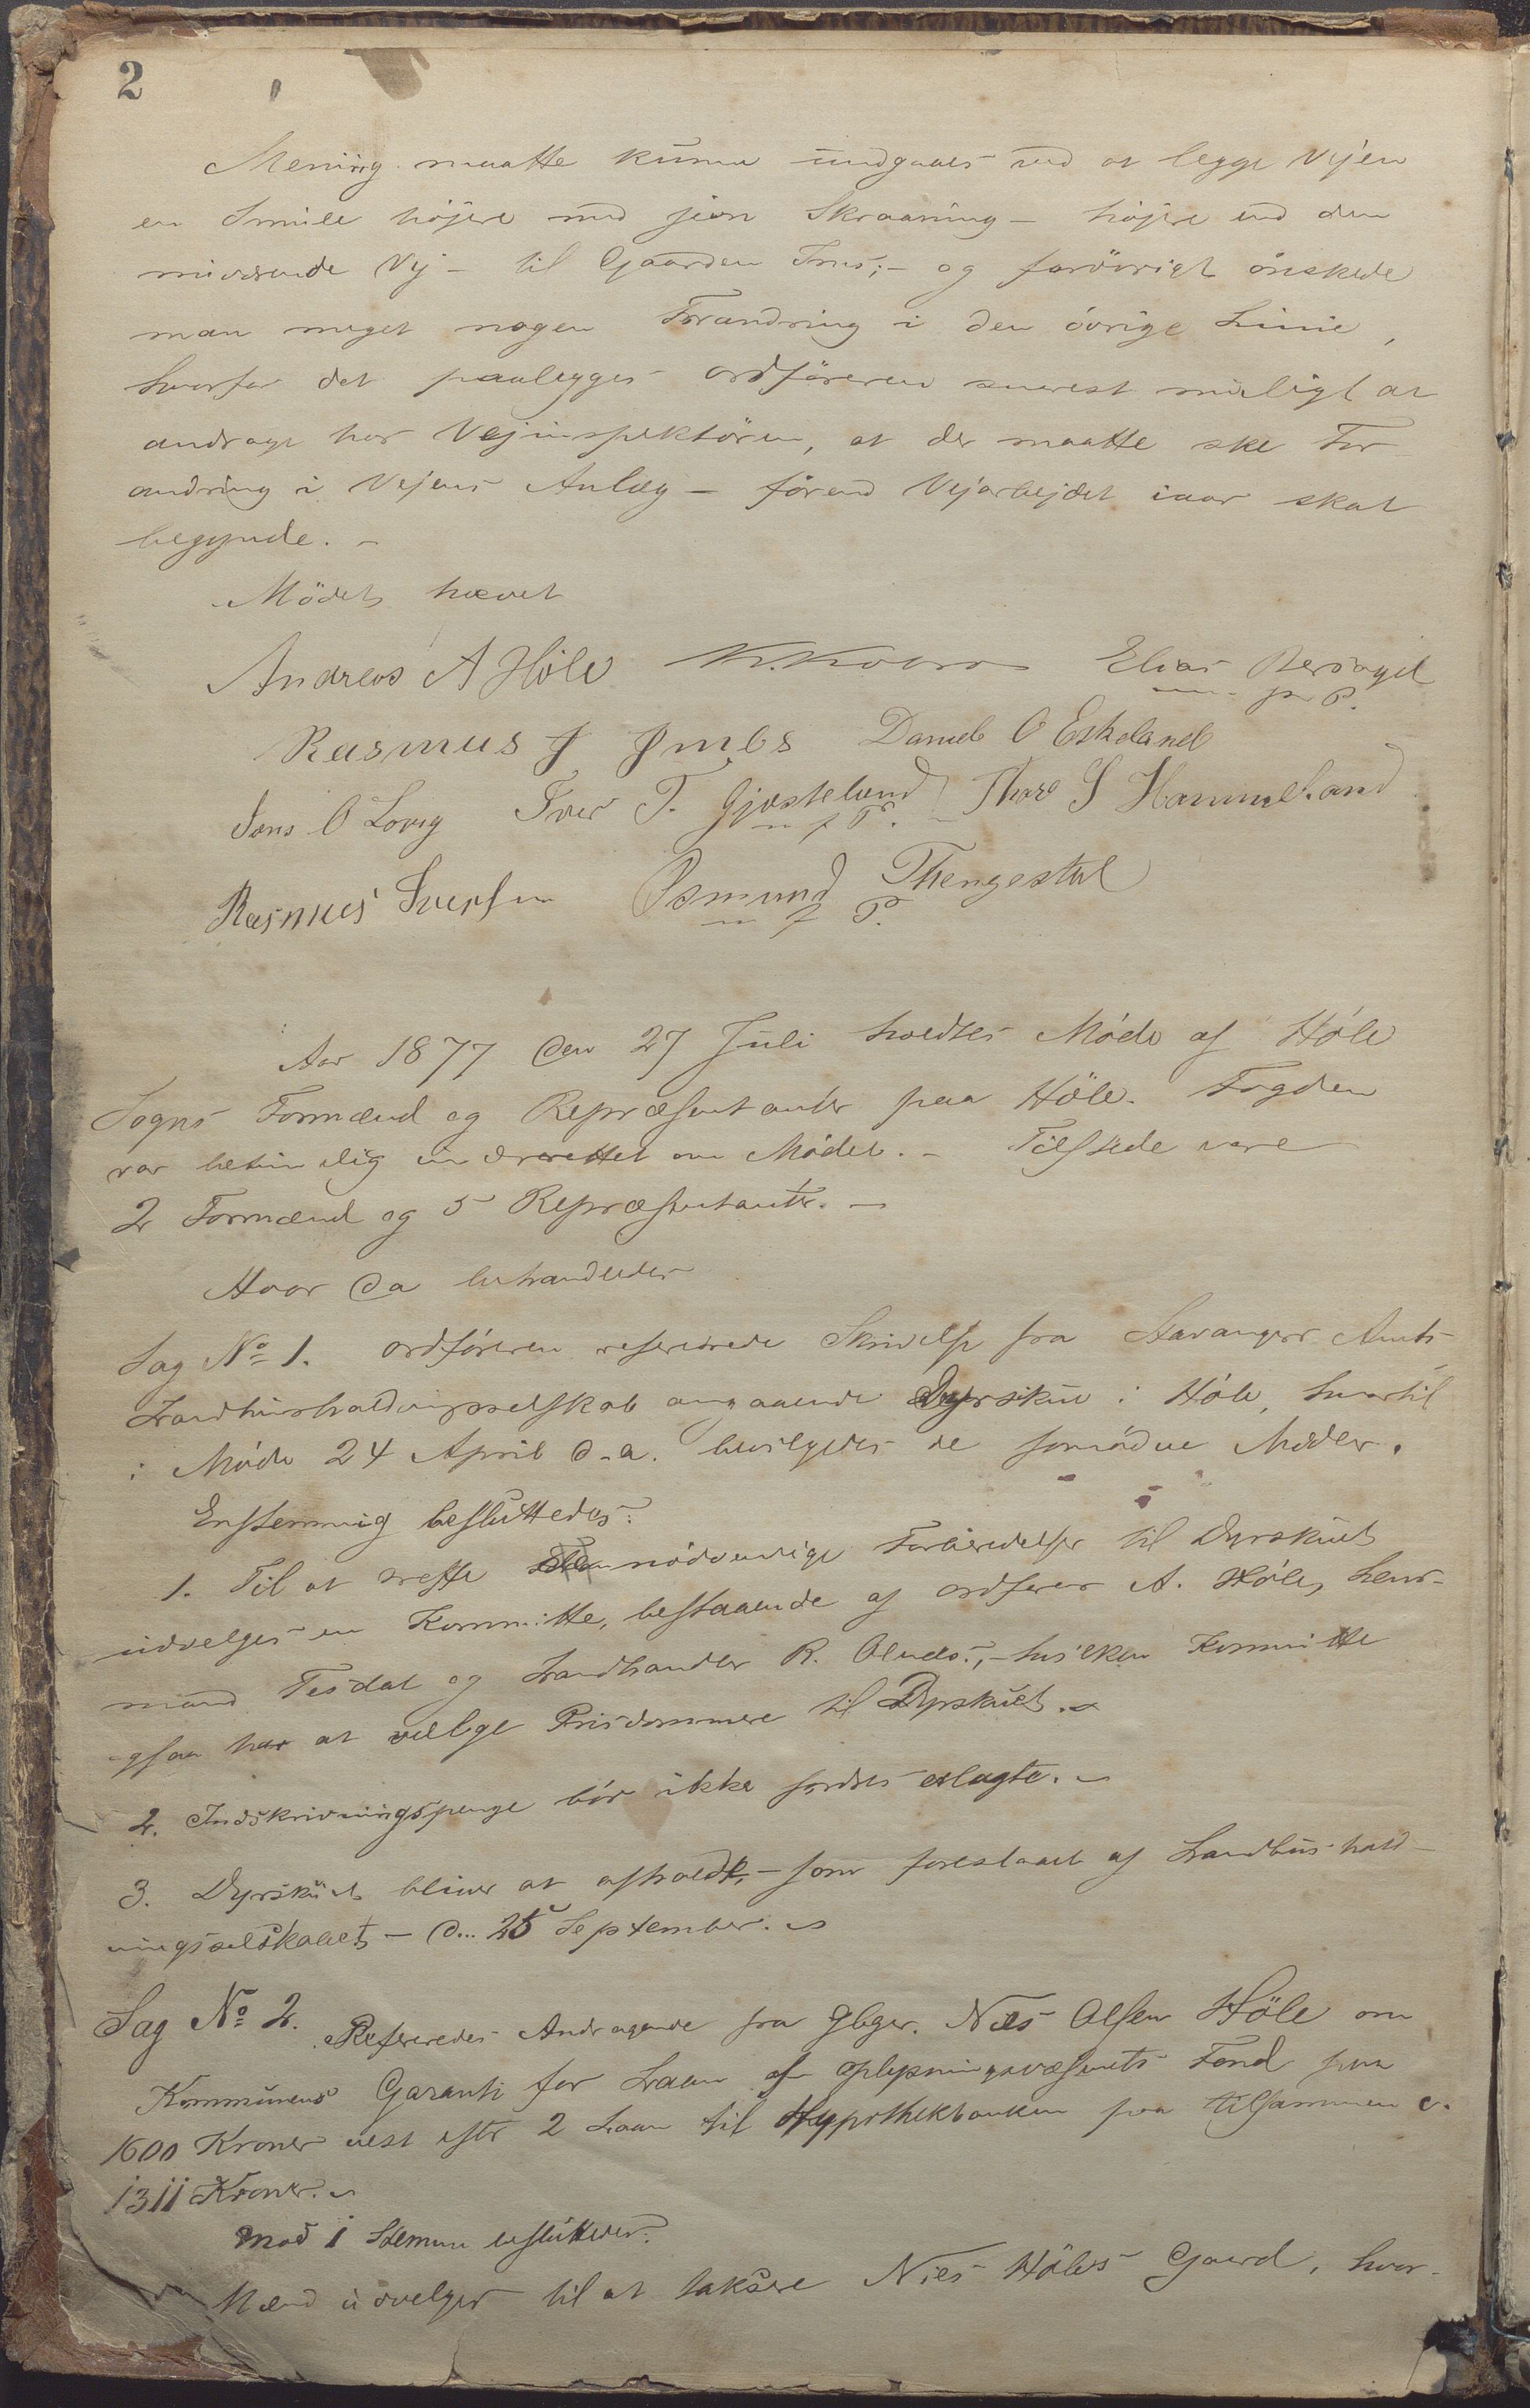 2
Mening maatte kunne undgaaes ved at legge Vejen
en Smule höjere med jevn Skraaning - höjere end den
nuværende Vej - til Gaarden Ims; - og forövrigt önskede
man meget nogen Forandring i den övrige Linie,
hvorfor det paalegges Ordföreren snarest muligt at
andrage hos Vejinspektören, at der maatte ske For
andring i Vejens Anlæg - förend Vejarbejdet iaar skal
begynde. -
Mödet hævet
Andreas A Höle Elias Bersagel
m. f P.
Rasmus J Jmbs Daniel O Eskeland
Jens O Lovig Iver T. Gjesteland Thore S Hammeland
m f P.
Rasmus Iversen Osmund Thengesdal
m f P.
Aar 1877 den 27 Juli holdtes Möde af Höle
Sogns Formænd og Repræsentanter paa Höle. Fogden
var betimelig underrettet om Mödet. - Tilstede vare
2 Formænd og 5 Repræsentanter. -
Hvor da behandledes
Sag No 1. Ordföreren refererede Skrivelse fra Stavanger Amts
Landhusholdningsselskab angaaende Dyrskue i Höle, hvortil
i Möde 24 April d.a. bevilgedes de fornödne Midler.
Enstemmig besluttedes:
1. Til at træffe nödvendige Forberedelser til Dyrskuet
udvelges en Kommitte, bestaaende af Ordförer A. Höle, Lens-
mand Tesdal og Landhandler R. Oluds., - hvilken Kommitte
ogsaa har at velge Prisdommere til Dyrskuet. -
2. Indskrivningspenge bör ikke fordres erlagte. -
3. Dyrskuet bliver at afholde, - som foreslaaet af Landhushold-
ningsselskabet - d... 25 September. -
Sag No 2. Refereredes Andragende fra Gbgr. Niels Olsen Höle om
Kommunens Garanti for Laan af Oplysningsvæsenets Fond paa
1600 Kroner nest efter 2 Laan til Hypothekbanken paa tilsammen c.
1311 Kroner. -
Mod 1 Stemme besluttedes:
Mænd udvelges til at taksere Niels Höles Gaard, hvor-